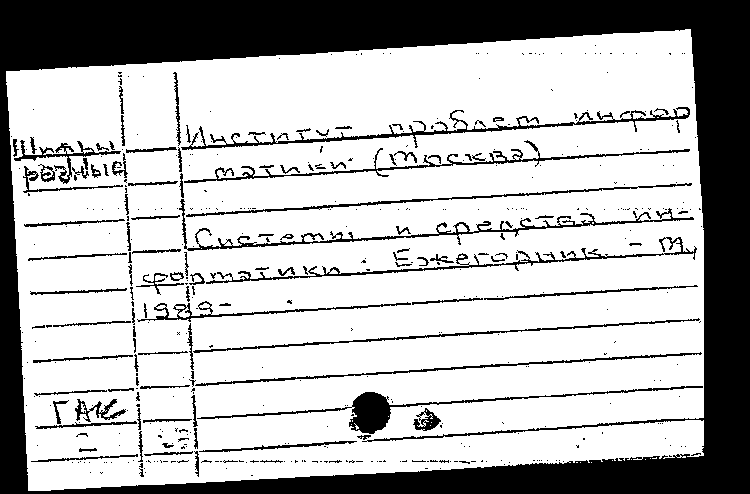 Шифры
разные
Институт проблем инфор
матики (Москва)
Системы и средства ин-
форматики : Ежегодник. - М,
1989-
ГАК